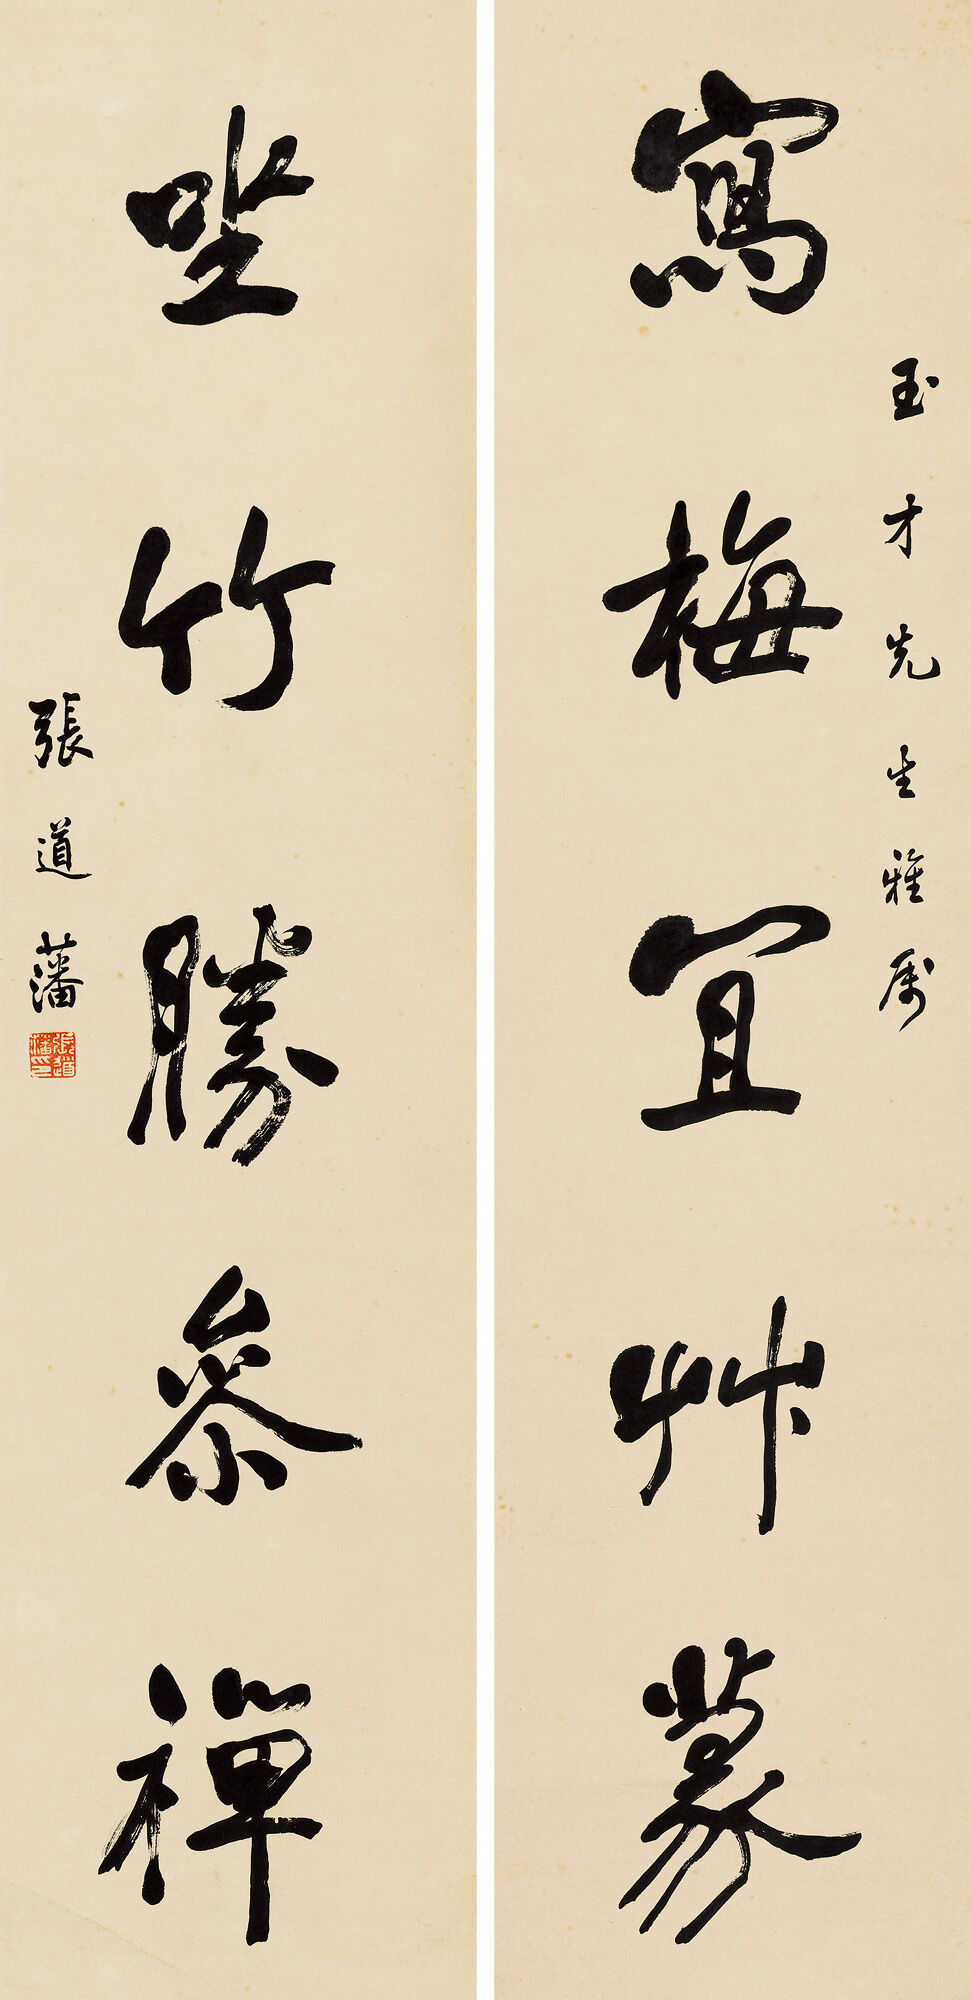 玉才先生雅属
寫梅宜艸篆
坐竹勝參禪
張道藩
張道藩印